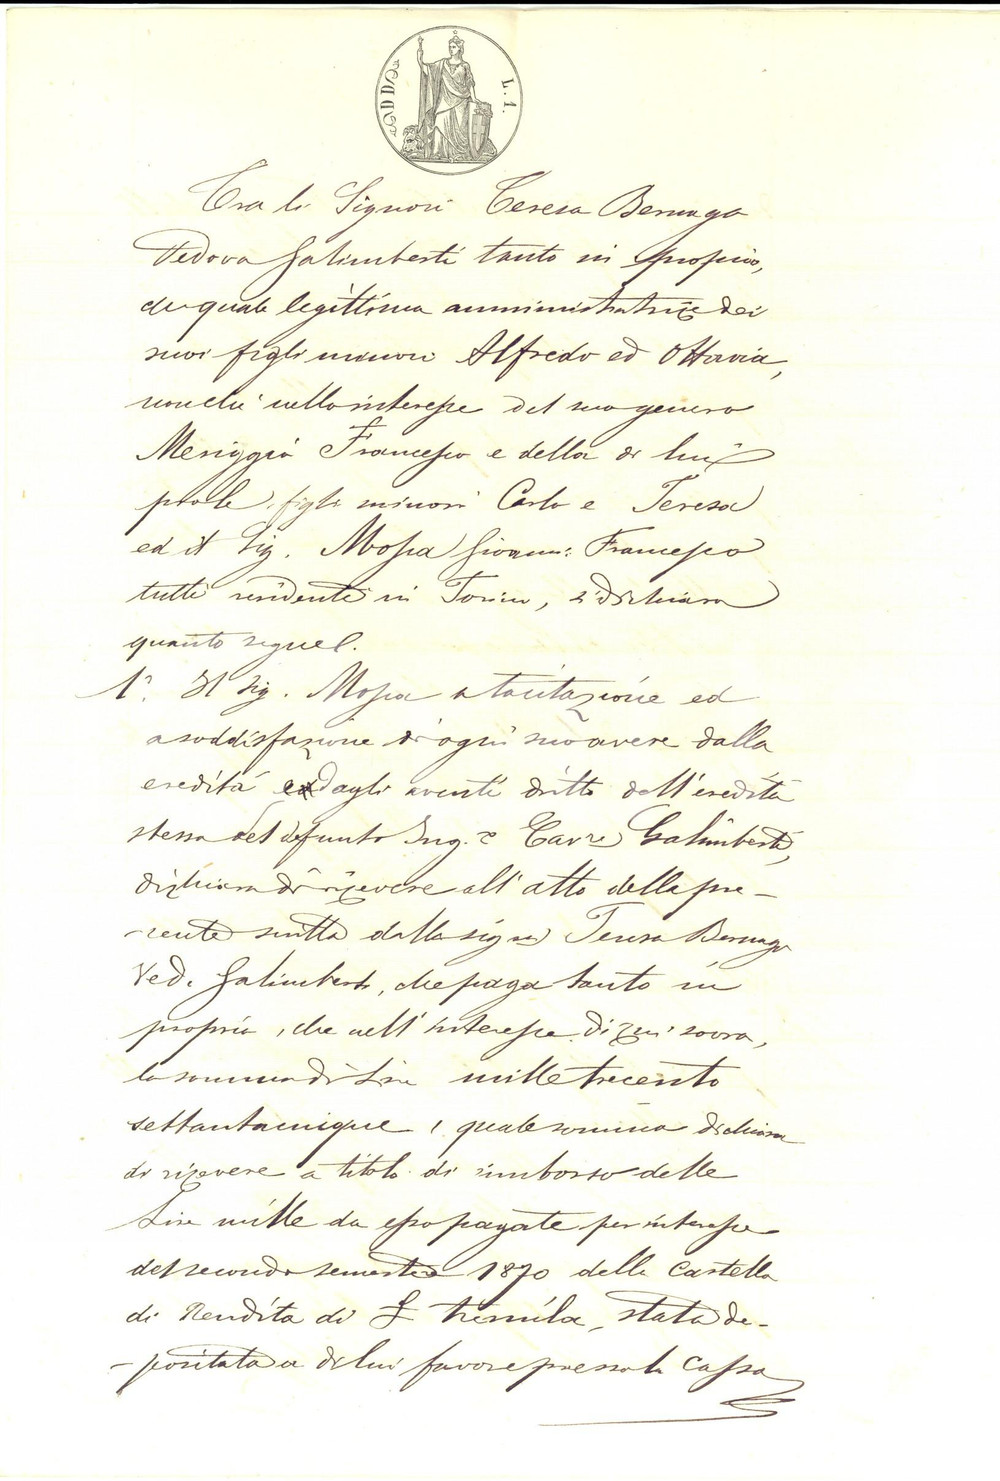 DD L. 1.
Tra li Signori Teresa Bernago
Vedova Galimberti tanto in proprio,
che quale legittima amministratrice dei
suoi figli minori Alfredo ed Ottavia,
nonchè nello interesse del suo genero
Meriggia Francesco e della di lui
prole, figli minori Carlo e Teresa
ed il Sig. Mossa Giovanni Francesco
tutti residenti in Torino, si dichiara
quanto segue.
1°. Il Sig. Mossa a tacitazione ed
a soddisfazione di ogni suo avere dalla
eredità e dagli aventi dritto dell'eredità
stessa del defunto Ing.e Cavre Galimberti,
dichiara di ricevere all'atto della pre-
-sente scritta dalla signa Teresa Bernago
Ved. Galimberti, che paga tanto in
proprio, che nell'interesse di cui sovra,
la somma di Lire mille trecento
settantacinque, quale somma dichiara
di ricevere a titolo di rimborso delle
Lire mille da esso pagate per interesse
del secondo semestre 1870 della Cartella
di Rendita di £ tremila, stata de-
-positata a di lui favore presso la Cassa